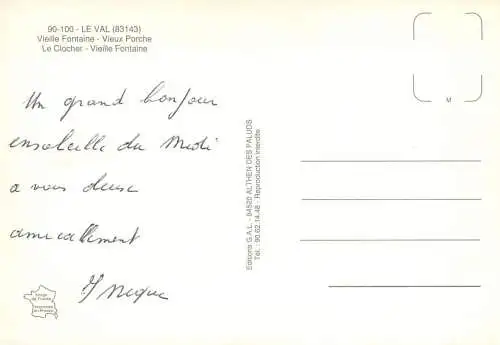 90-100 - LE VAL (83143)
Vieille Fontaine - Vieux Porche
Le Clocher - Vieille Fontaine
Un grand bonjour
ensoleille du Midi
a vous deux
amicallement
M
Editions G.A.L. - 84520 ALTHEN DES PALUDS
Tél. : 90.62.14.48 - Reproduction interdite